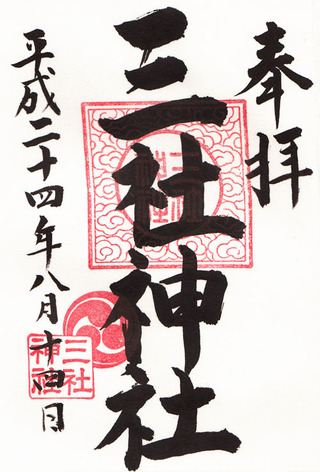 奉拝
三社神社
平成二十四年八月十四日
三社
神社